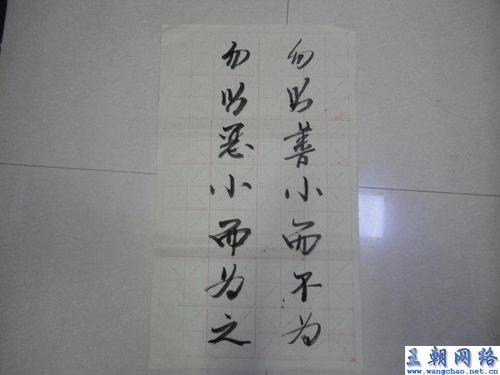 勿以善小而不为
勿以恶小而为之
王朝网络
www.wangchao.net.cn